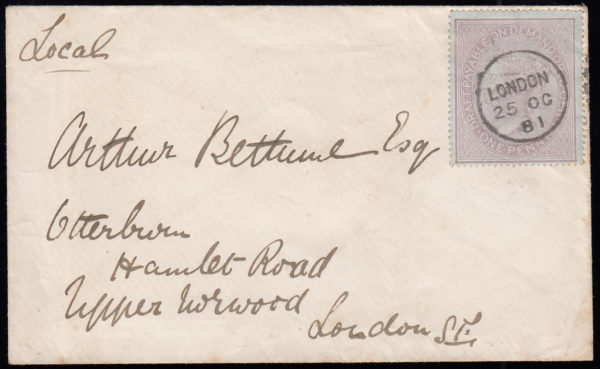 Local
DRAFT PAYABLE ON DEMAND OR RECEIPT ONE PENNY
LONDON
25 OC
81
Arthur Bethune Esq
Otterburn
Hamlet Road
Upper Norwood
London S.E.